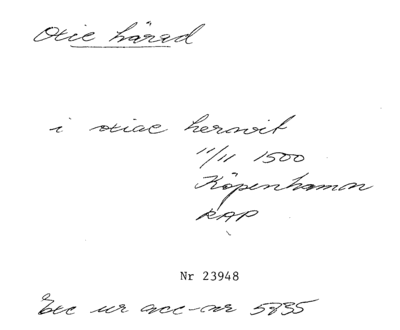 Oxie härad
i oxiae herwit
11/11 1500
Köpenhamn
RAP
Nr 23948
Exc ur acc-nr 5835